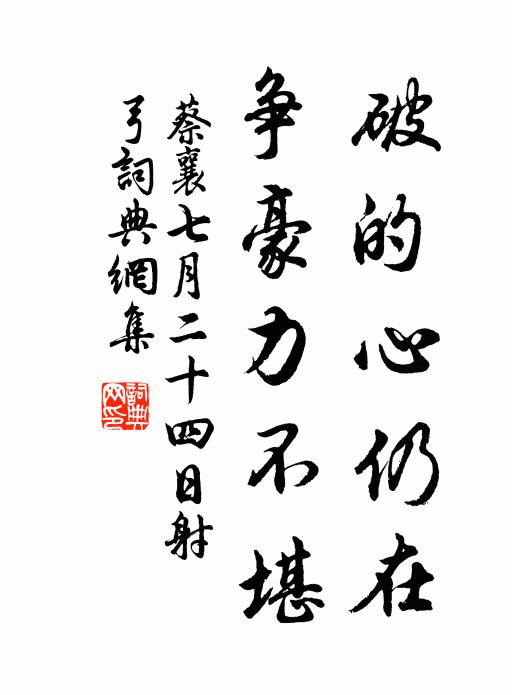 破的心仍在
争豪力不堪
蔡襄七月二十四日射
弓詞典網集
詞典网印